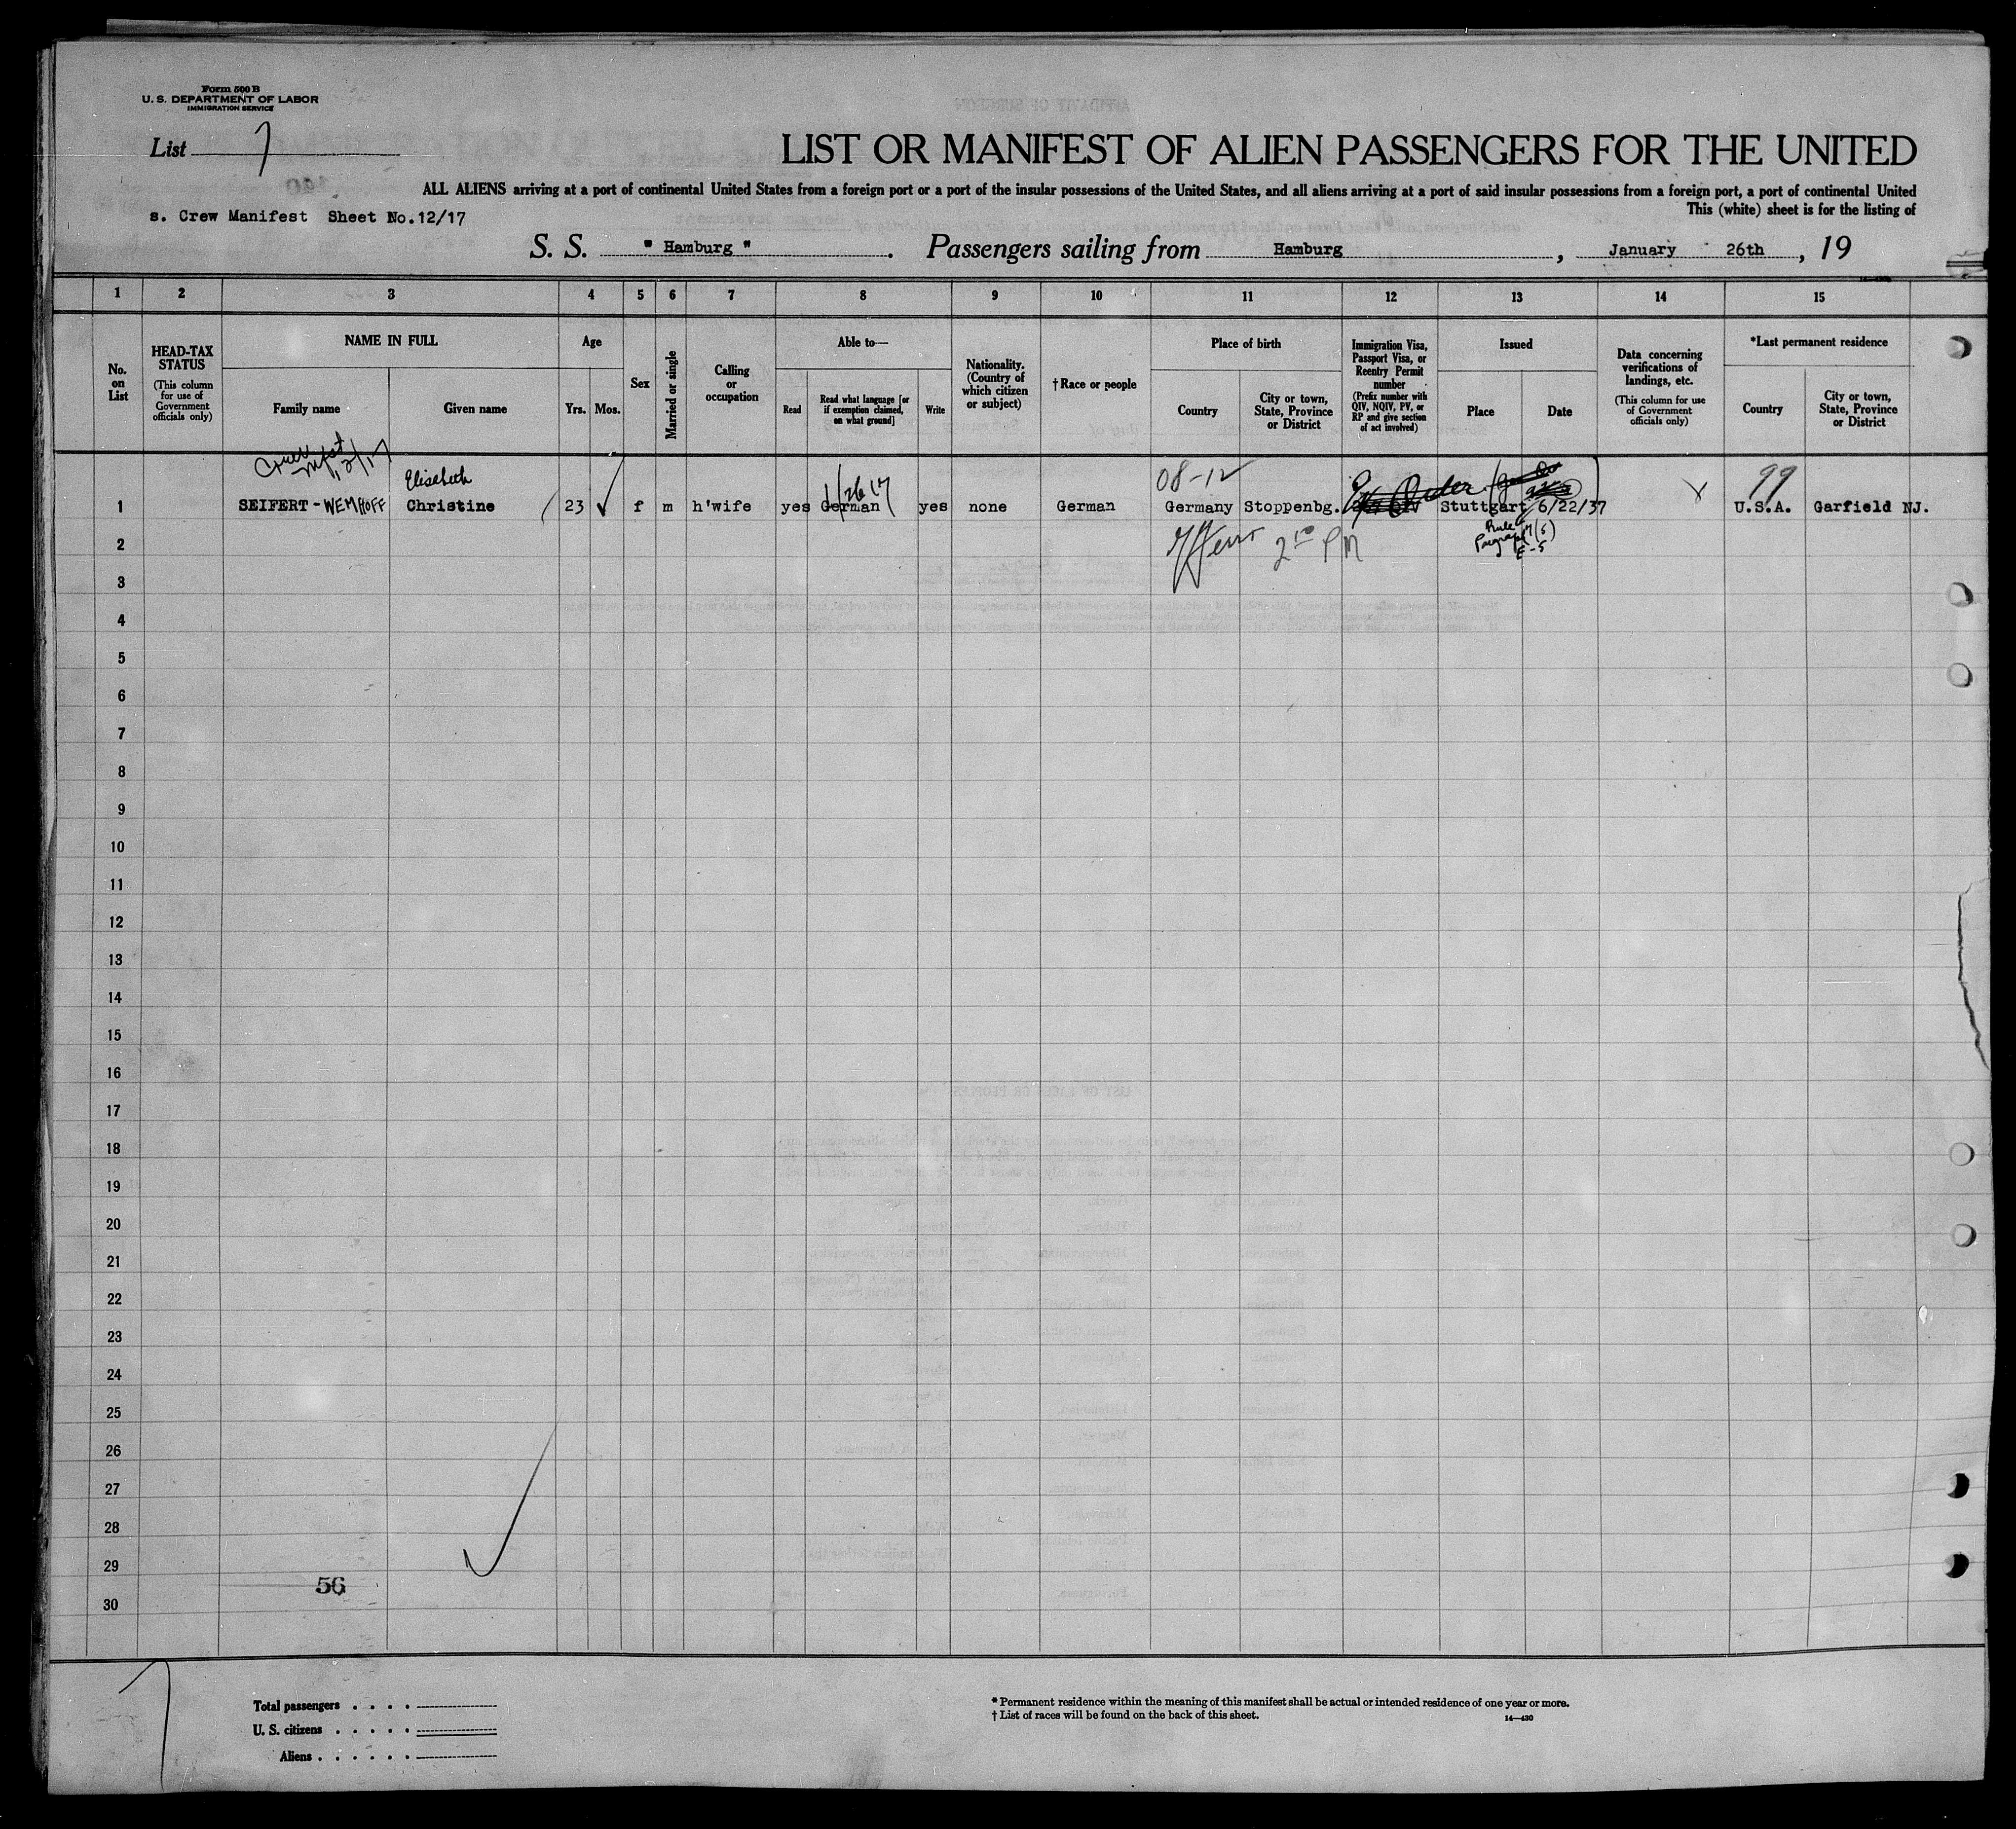 Form 500 B
U. S. DEPARTMENT OF LABOR
IMMIGRATION SERVICE
List 7
LIST OR MANIFEST OF ALIEN PASSENGERS FOR THE UNITED
ALL ALIENS arriving at a port of continental United States from a foreign port or a port of the insular possessions of the United States, and all aliens arriving at a port of said insular possessions from a foreign port, a port of continental United
s. Crew Manifest Sheet No.12/17
This (white) sheet is for the listing of
S. S. " Hamburg ". Passengers sailing from Hamburg, January 26th, 19
1 2 3 4 5 6 7 8 9 10 11 12 13 14 15
No. on List
HEAD-TAX STATUS
(This column for use of Government officials only)
NAME IN FULL
Family name
Given name
Age
Yrs. Mos.
Sex
Married or single
Calling or occupation
Able to—
Read
Read what language [or if exemption claimed, on what ground]
Write
Nationality. (Country of which citizen or subject)
† Race or people
Place of birth
Country
City or town, State, Province or District
Immigration Visa, Passport Visa, or Reentry Permit number
(Prefix number with QIV, NQIV, PV, or RP and give section of act involved)
Issued
Place
Date
Data concerning verifications of landings, etc.
(This column for use of Government officials only)
*Last permanent residence
Country
City or town, State, Province or District
Crew Mfst 12/17
Elisabeth
08-12
99
1 SEIFERT - WEMHOFF Christine 23 f m h'wife yes German yes none German Germany Stoppenbg. Stuttgart 6/22/37 U.S.A. Garfield NJ.
Rule
Paragraph
2 2 10 PM
3
4
5
6
7
8
9
10
11
12
13
14
15
16
17
18
19
20
21
22
23
24
25
26
27
28
29
56
30
Total passengers . . . .
U. S. citizens . . . . .
Aliens . . . . . .
* Permanent residence within the meaning of this manifest shall be actual or intended residence of one year or more.
† List of races will be found on the back of this sheet.
14—430